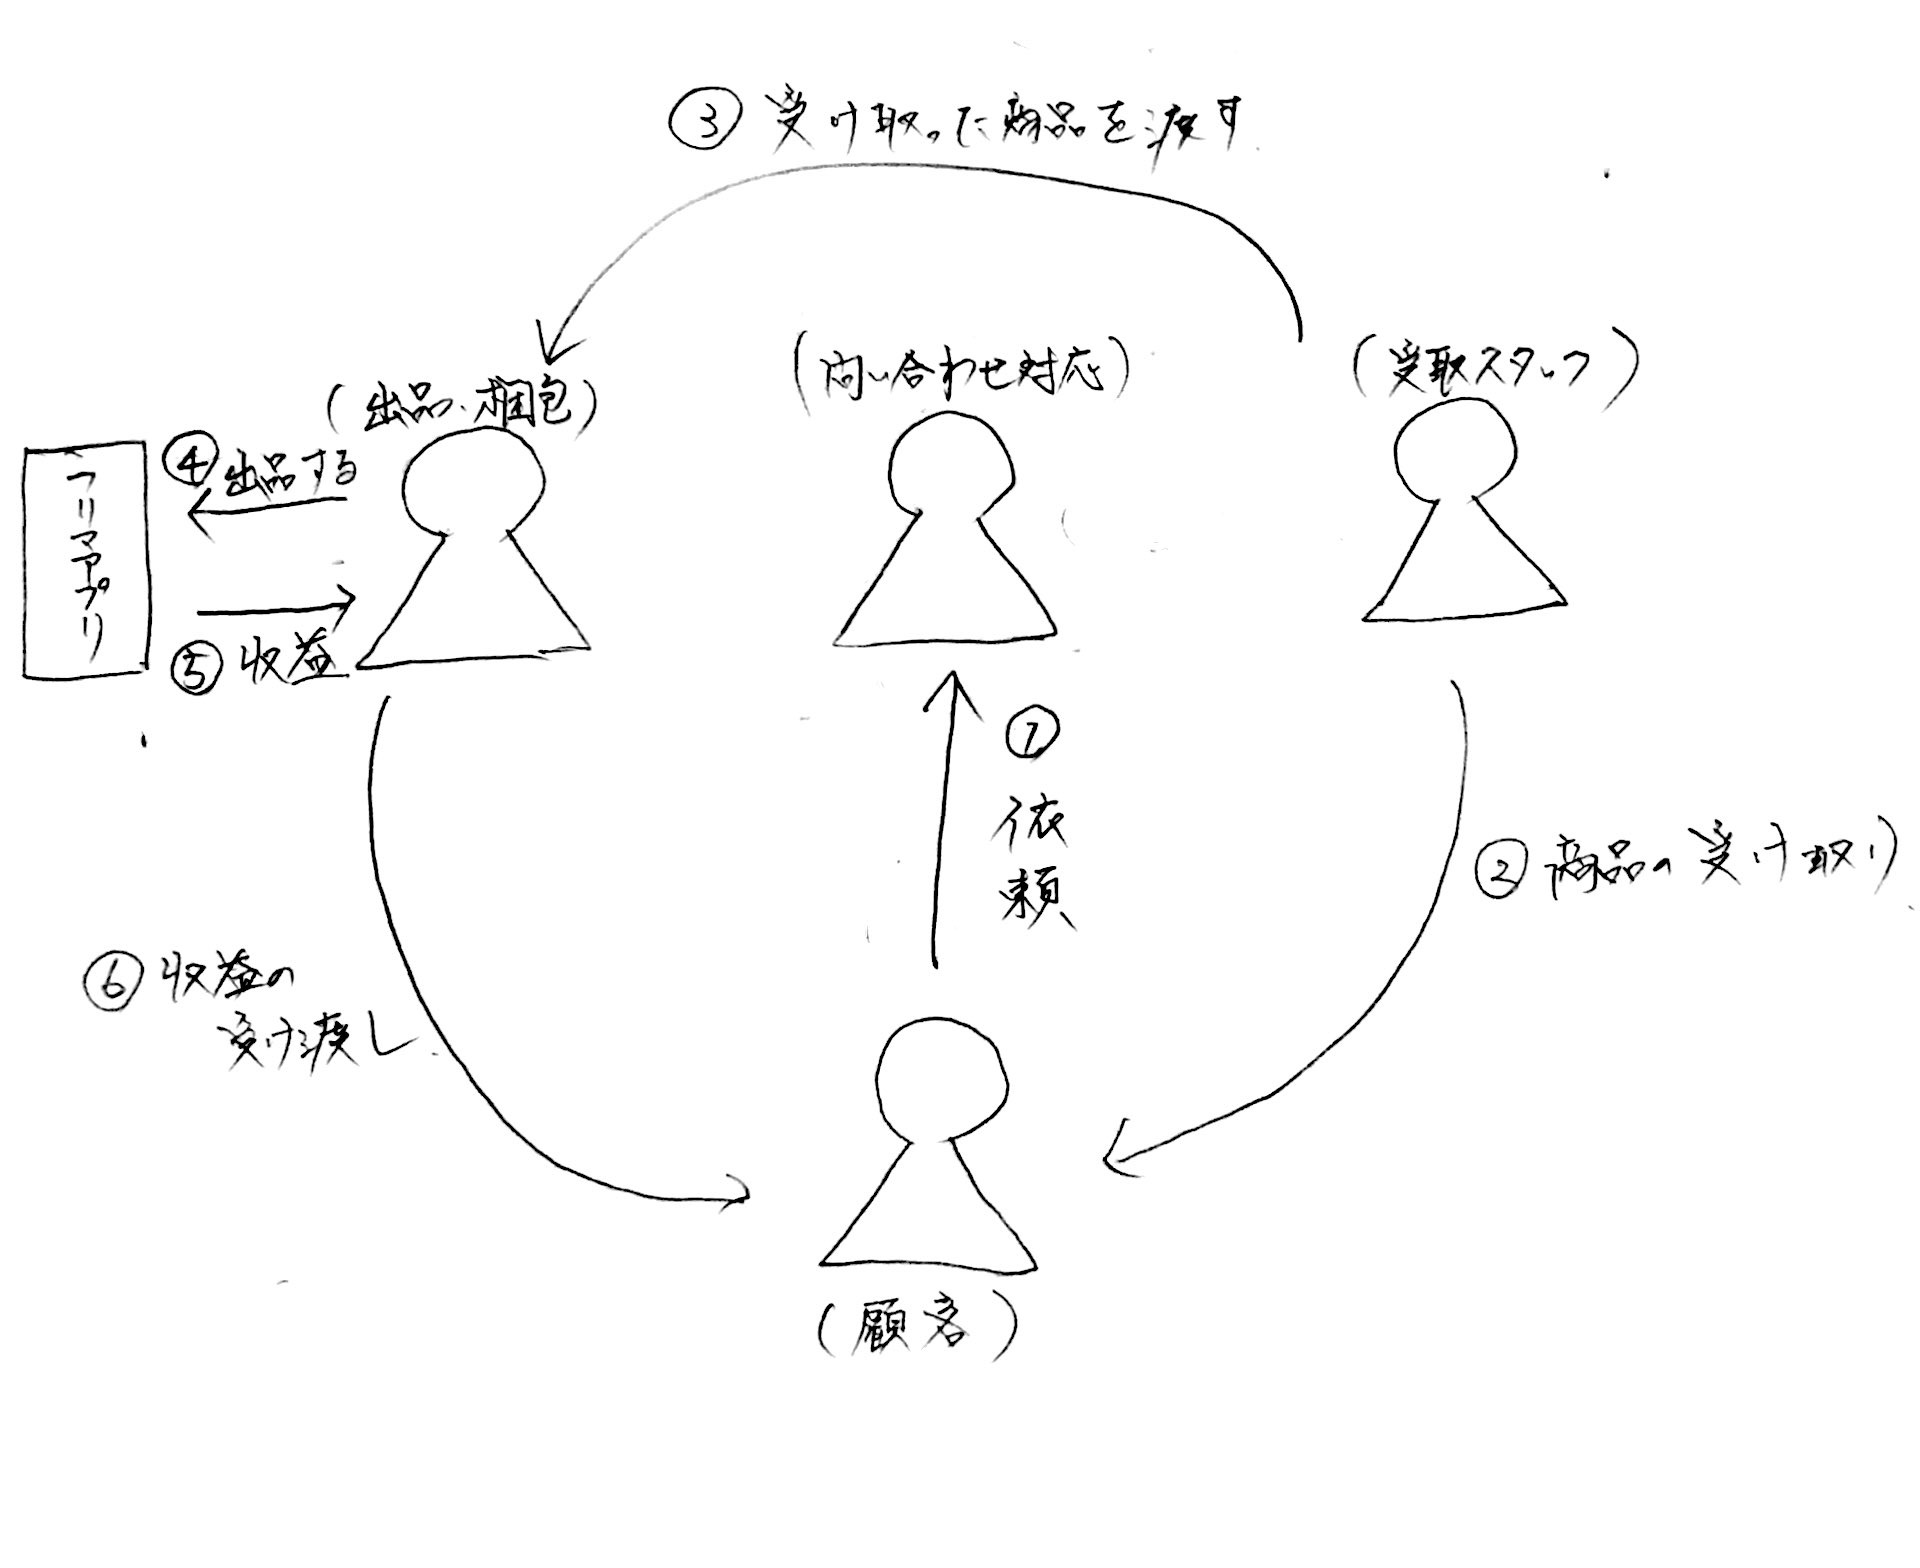 ③ 受け取った商品を渡す
(出品、梱包)
(問い合わせ対応)
(受取スタッフ)
フリマアプリ
④ 出品する
⑤ 収益
① 依頼
② 商品の受け取り
⑥ 収益の
受け渡し
(顧客)